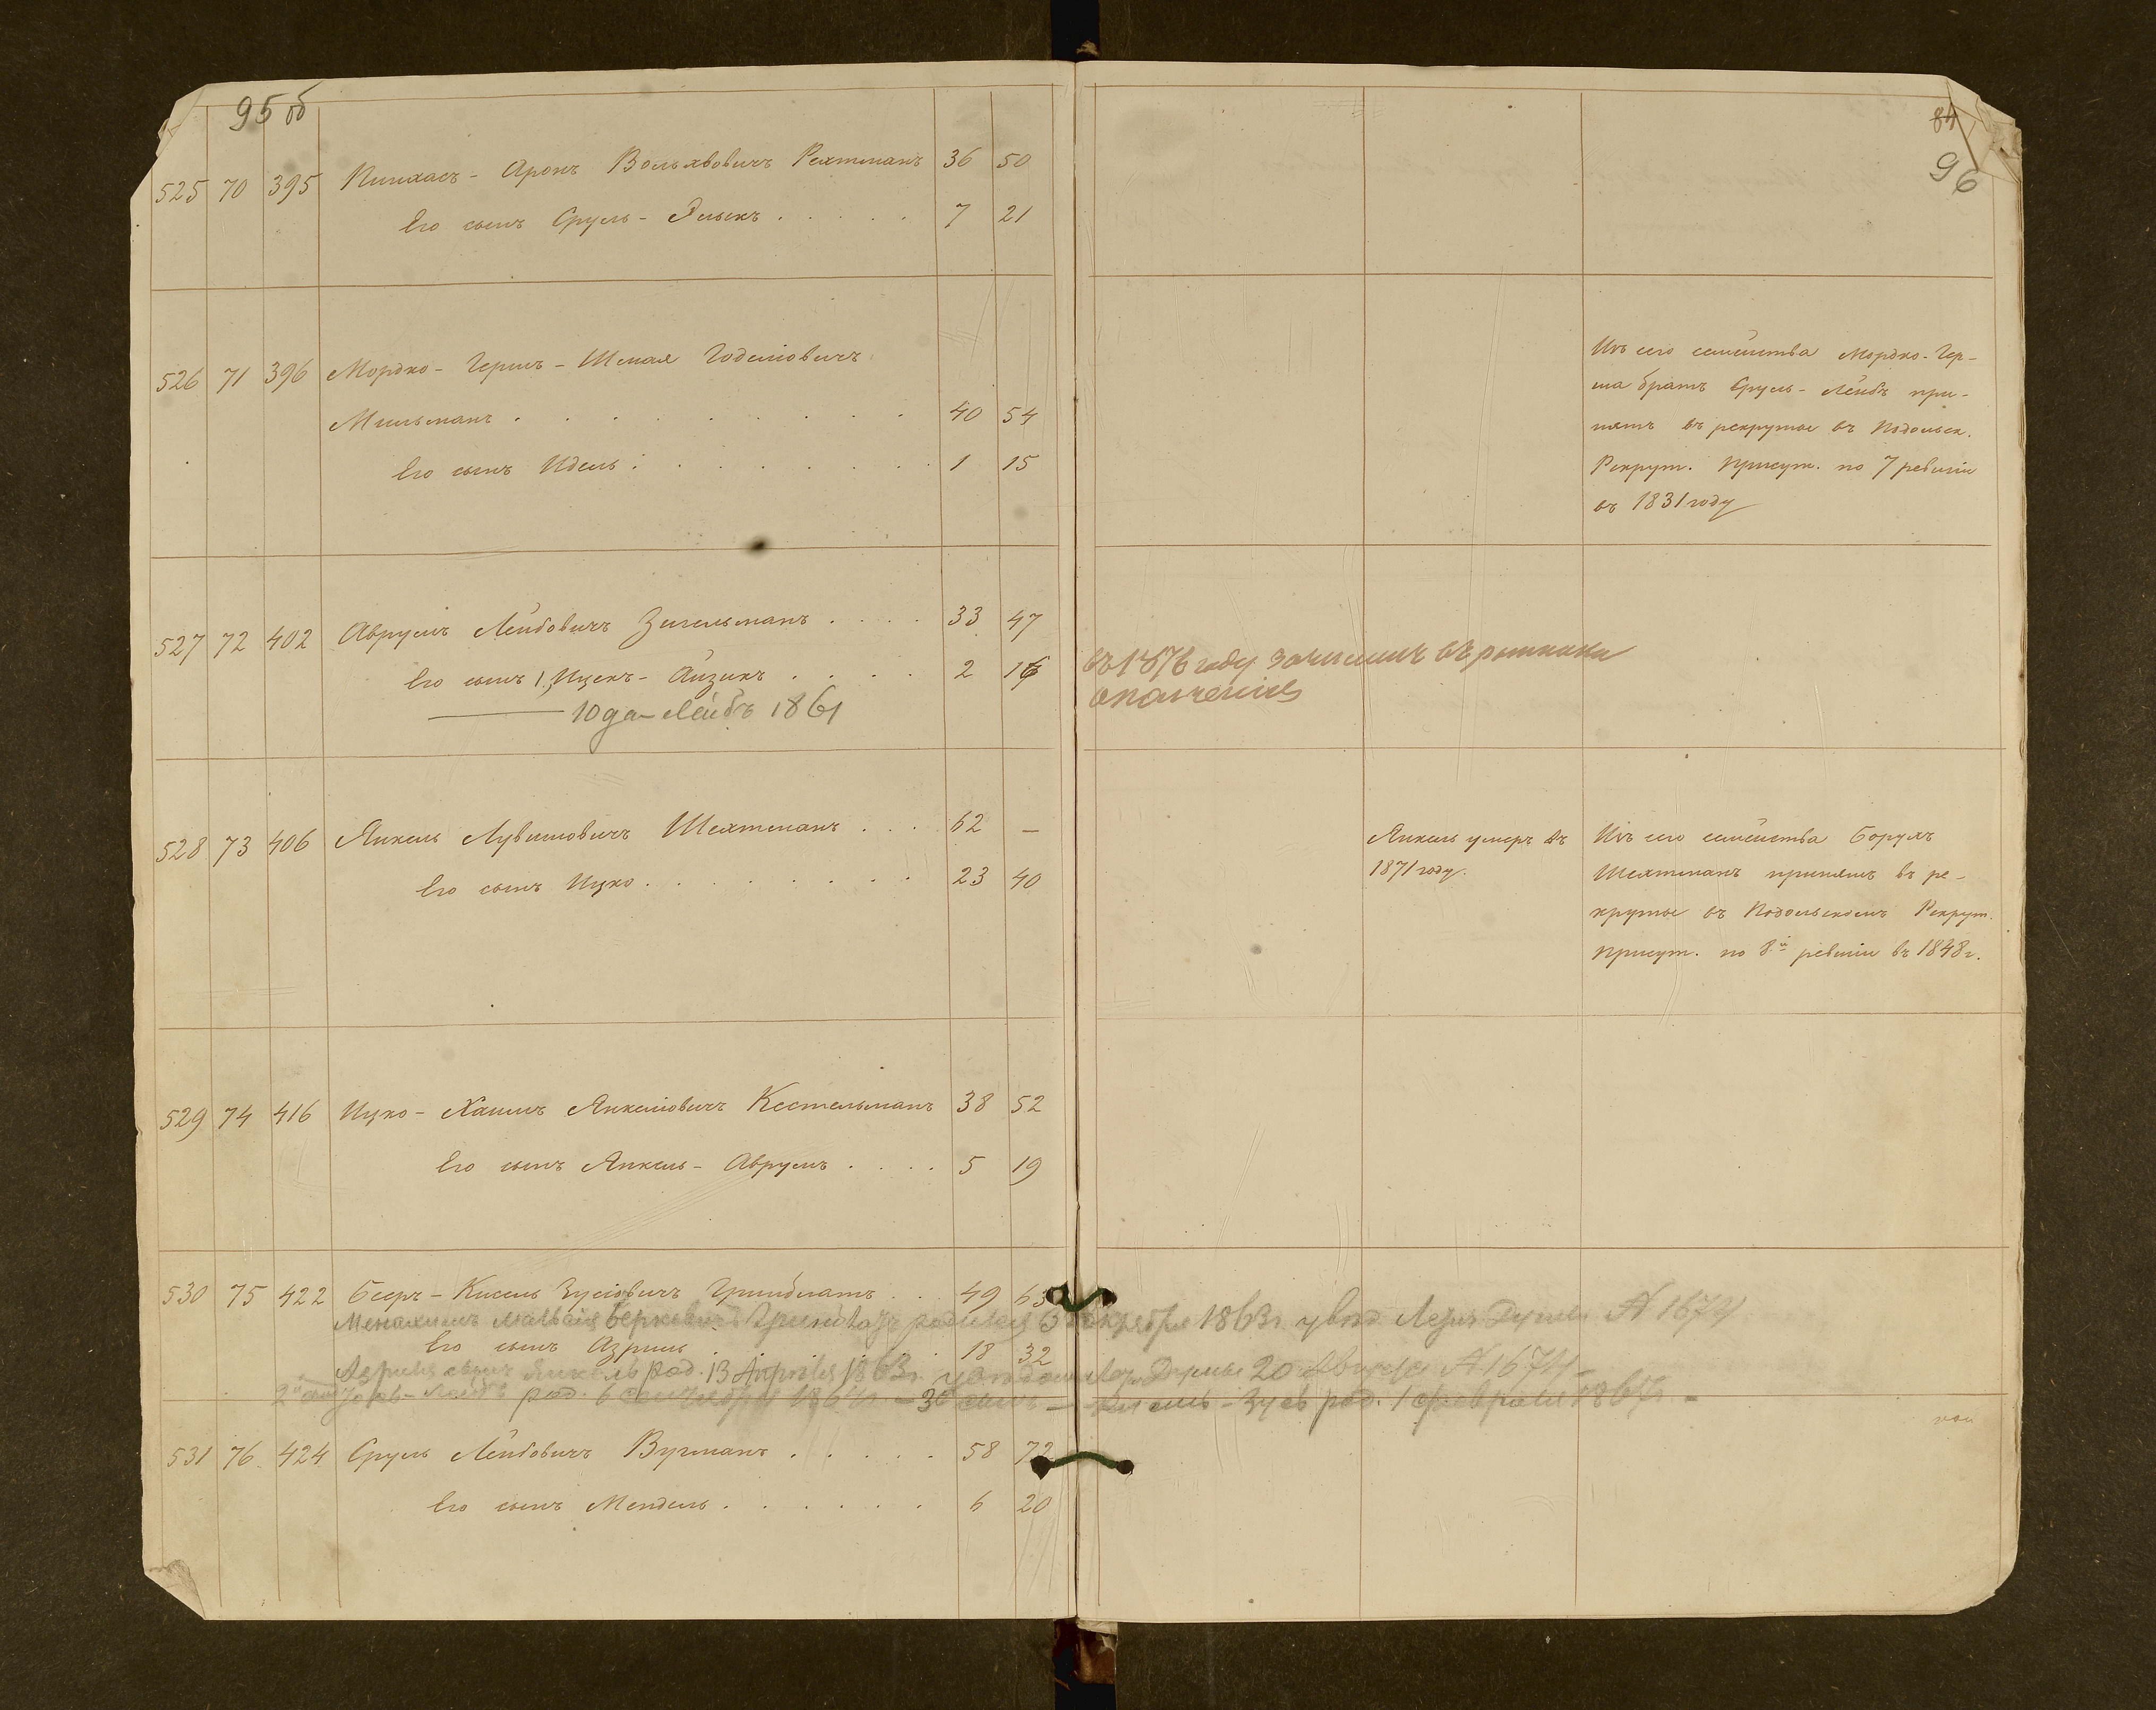 95 об
525 70 395 Пинхасъ - Аронъ Вольховичъ Рехтманъ 36 50
Его сынъ Сруль - Элыкъ . . . . . 7 21
526 71 396 Мордко - Гершъ - Шмая Годелiовичъ
Мильманъ . . . . . . . . 40 54
Его сынъ Идель . . . . . . . 1 15
527 72 402 Аврумъ Лейбовичъ Зигельманъ . . . . 33 47
Его сынъ 1, Ицекъ - Айзикъ . . . . 2 16
Юда - Лейбъ 1861
528 73 406 Янкель Лувишовичъ Шехтманъ . . . 62 —
Его сынъ Ицко . . . . . . . . 23 40
529 74 416 Ицко - Хаимъ Янкелiовичъ Кестельманъ 38 52
Его сынъ Янкель - Аврумъ . . . . 5 19
530 75 422 Беръ - Кисель Зусiовичъ Гринблатъ . . 49 63
Менахимъ Берковичъ 1863г. № 1674
Его сынъ Азриль . . . . . 18 32
сынъ Янкель род. 13 Апреля 1863г. 20 Августа № 1674 -
Лейбъ род. 6 - 3й сынъ - Кисель - Зусь род. 1 февраля
531 76 424 Сруль Лейбовичъ Вугманъ . . . . . 58 72
Его сынъ Мендель . . . . . . 6 20
84
96
Изъ сего семейства Мордко - Гер-
ша братъ Сруль - Лейбъ при-
нятъ въ рекруты въ Подольск.
Рекрут. присут. по 7 ревизiи
въ 1831 году
въ 1876 году зачисленъ въ ратники
ополченiя
Янкель умеръ въ
1871 году.
Изъ сего семейства Борухъ
Шехтманъ принятъ въ ре-
круты въ Подольскомъ Рекрут.
присут. по 8й ревизiи въ 1848 г.